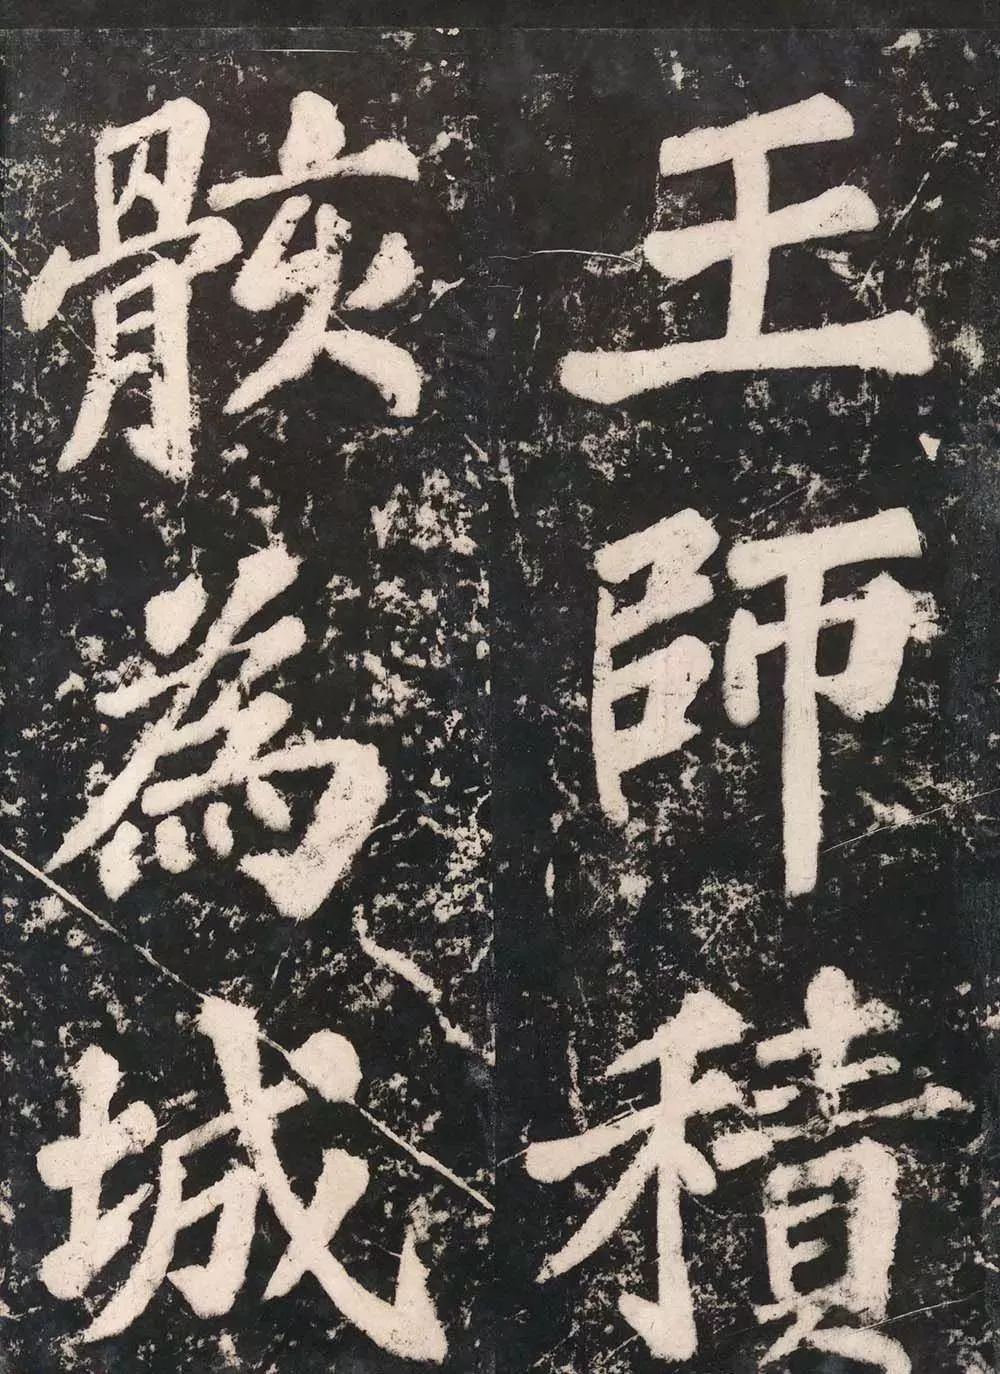 王師積
骸為城